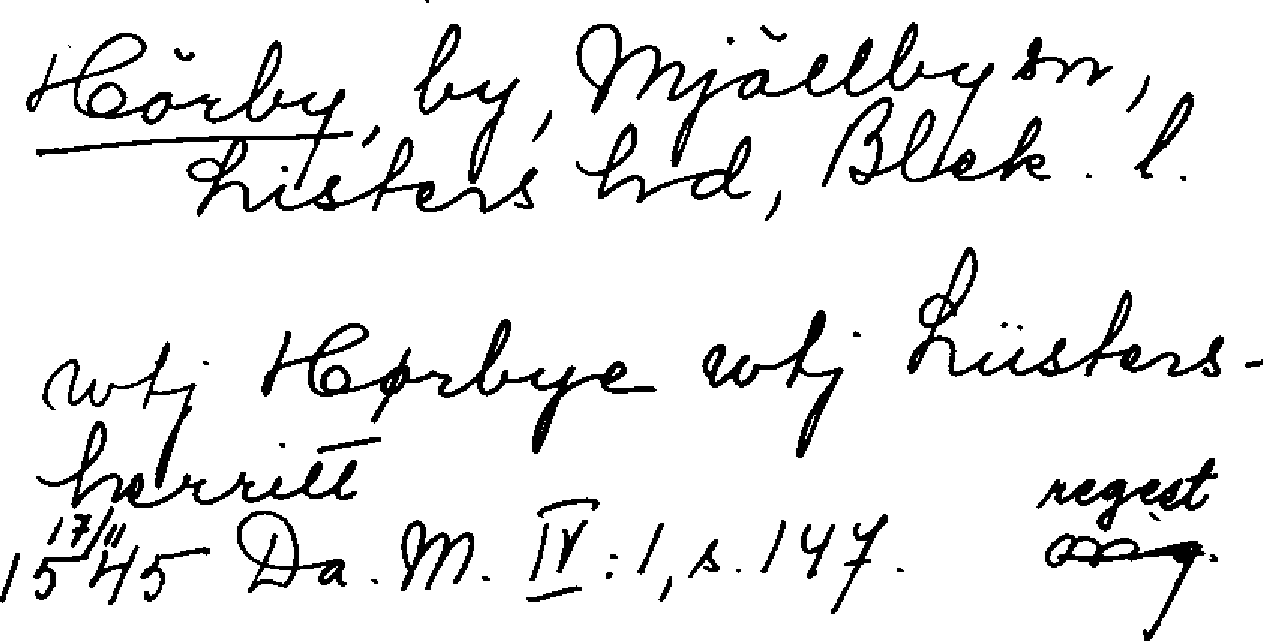 Hörby, by, Mjällby sn,
Listers hd, Blek. l.
wtj Hørbye wtj Lüsters-
herritt
regest
17/11
1545 Da. M. IV:1, s. 147.